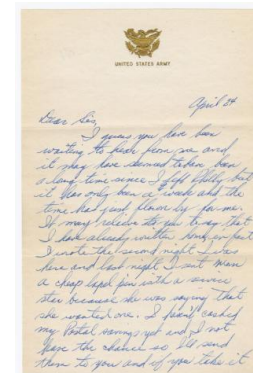 UNITED STATES ARMY
April 24
Dear Sis,
I guess you have been
waiting to hear from me and
it may have seemed
a long time since I left but
it has only been a week and the
time has just flown by for me.
It may relieve you to say that
I have already written but
I wrote the second night I was
here and last night I sent
a cheap pin with a
star because she was saying that
she wanted one. I cashed
my Postal savings yet and I not
have the chance so I'll send
them to you and if you take it